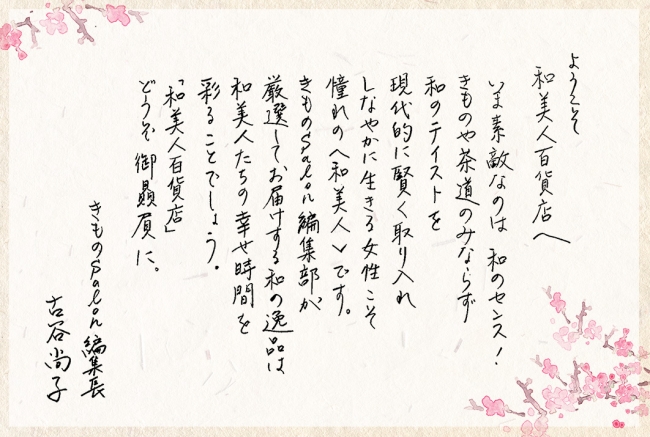 ようこそ
和美人百貨店へ
いま素敵なのは 和のセンス!
きものや茶道のみならず
和のテイストを
現代的に賢く取り入れ
しなやかに生きる女性こそ
憧れの〈和美人〉です。
きものSalon編集部が
厳選してお届けする和の逸品は
和美人たちの幸せ時間を
彩ることでしょう。
「和美人百貨店」
どうぞ御贔屓に。
きものSalon編集長
古谷尚子